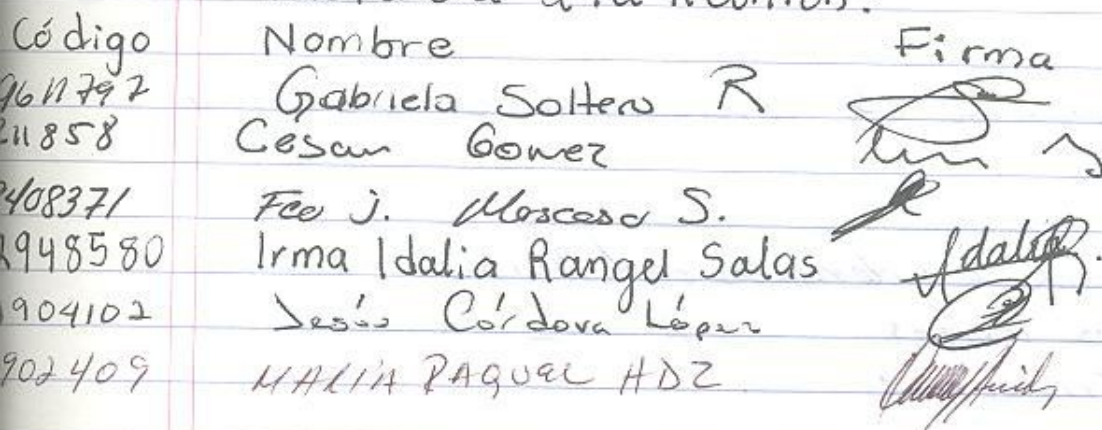 a la reunión.
Código Nombre Firma
9611792 Gabriela Soltero R
211858 Cesar Gomez
2408371 Fco J. Moscoso S.
2948580 Irma Idalia Rangel Salas Idalia R.
904102 Jesús Córdova López
902409 MARIA RAQUEL HDZ